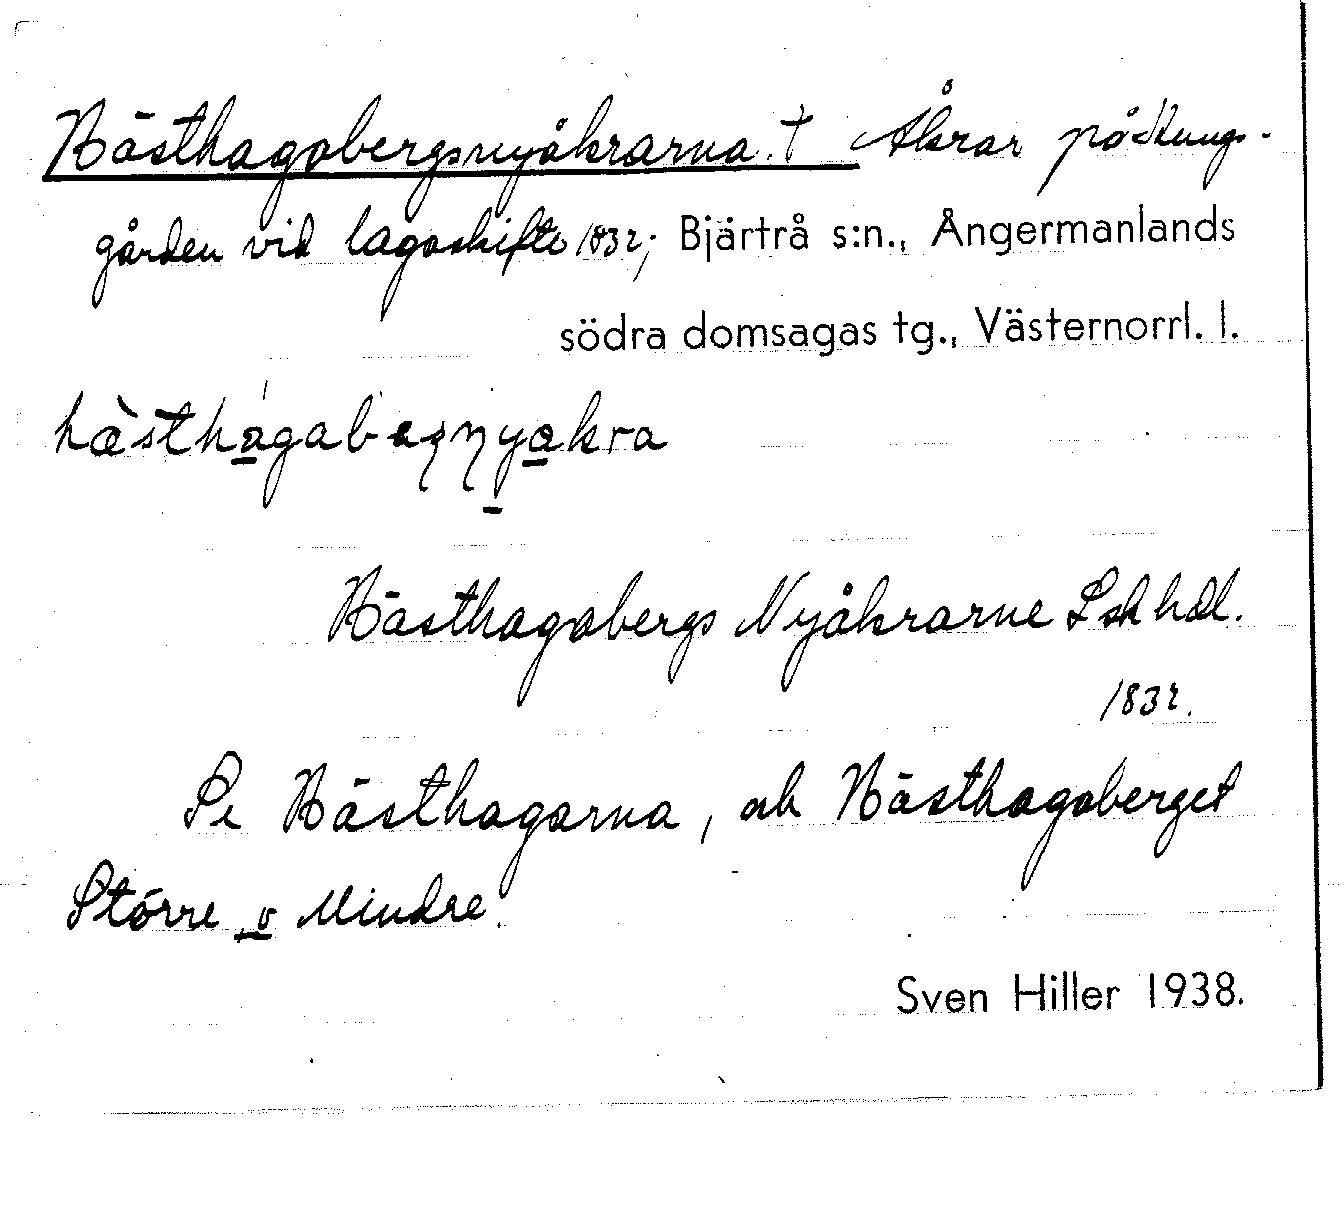 Hästhagabergsnyåkrarna. † Åkrar på Kungs-
gården vid lagaskifte 1832; Bjärtrå s:n., Ångermanlands
södra domsagas tg., Västernorrl. l.
hästhagabæȵyakra
Hästhagabergs Nyåkrarne Lsk hdl.
1832.
Se Hästhagarna, och Hästhagaberget
Större o Mindre.
Sven Hiller 1938.